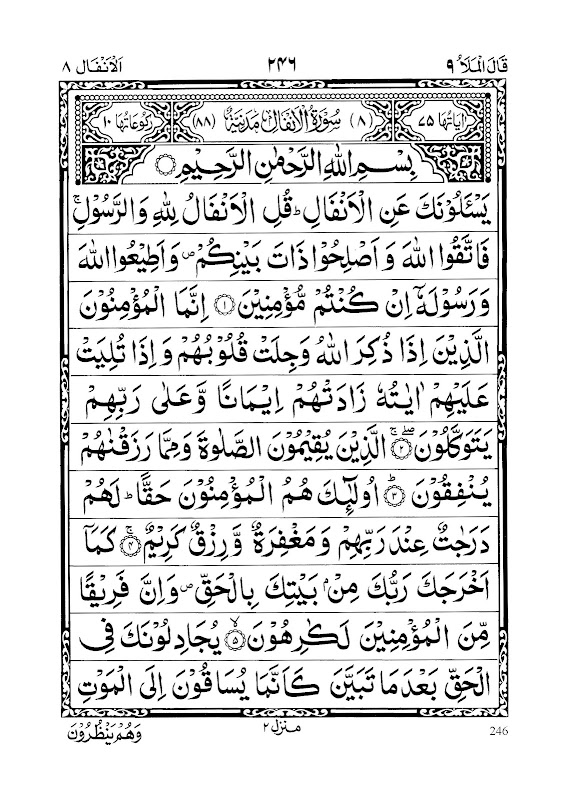 قَالَ الْمَلَاُ ٩ ٢٤٦ الْاَنْفَال ٨
اٰيَاتُهَا ٧٥ (٨) سُوْرَةُ الْاَنْفَالِ مَدَنِيَّةٌ (٨٨) رُكُوْعَاتُهَا ١٠
بِسْمِ اللّٰهِ الرَّحْمٰنِ الرَّحِيْمِ
يَسْـَٔلُوْنَكَ عَنِ الْاَنْفَالِ ؕ قُلِ الْاَنْفَالُ لِلّٰهِ وَالرَّسُوْلِ ۚ
فَاتَّقُوا اللّٰهَ وَ اَصْلِحُوْا ذَاتَ بَيْنِكُمْ ۪ وَ اَطِيْعُوا اللّٰهَ
وَ رَسُوْلَهٗۤ اِنْ كُنْتُمْ مُّؤْمِنِيْنَ ﴿١﴾ اِنَّمَا الْمُؤْمِنُوْنَ
الَّذِيْنَ اِذَا ذُكِرَ اللّٰهُ وَجِلَتْ قُلُوْبُهُمْ وَ اِذَا تُلِيَتْ
عَلَيْهِمْ اٰيٰتُهٗ زَادَتْهُمْ اِيْمَانًا وَّ عَلٰى رَبِّهِمْ
يَتَوَكَّلُوْنَ ﴿٢﴾ الَّذِيْنَ يُقِيْمُوْنَ الصَّلٰوةَ وَ مِمَّا رَزَقْنٰهُمْ
يُنْفِقُوْنَ ﴿٣﴾ اُولٰٓئِكَ هُمُ الْمُؤْمِنُوْنَ حَقًّا ؕ لَهُمْ
دَرَجٰتٌ عِنْدَ رَبِّهِمْ وَ مَغْفِرَةٌ وَّ رِزْقٌ كَرِيْمٌ ﴿٤﴾ كَمَاۤ
اَخْرَجَكَ رَبُّكَ مِنْۢ بَيْتِكَ بِالْحَقِّ ۪ وَ اِنَّ فَرِيْقًا
مِّنَ الْمُؤْمِنِيْنَ لَكٰرِهُوْنَ ﴿٥﴾ يُجَادِلُوْنَكَ فِى
الْحَقِّ بَعْدَ مَا تَبَيَّنَ كَاَنَّمَا يُسَاقُوْنَ اِلَى الْمَوْتِ
وَهُمْ يَنْظُرُوْنَ
منزل ٢
246